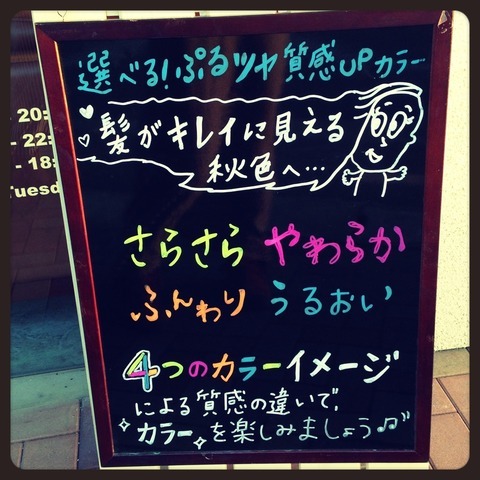 選べる！ぷるツヤ質感UPカラー
髪がキレイに見える
秋色へ…
さらさら やわらか
ふんわり うるおい
4つのカラーイメージ
による質感の違いで、
カラーを楽しみましょう♫
20:
- 22:
- 18:
Tuesd